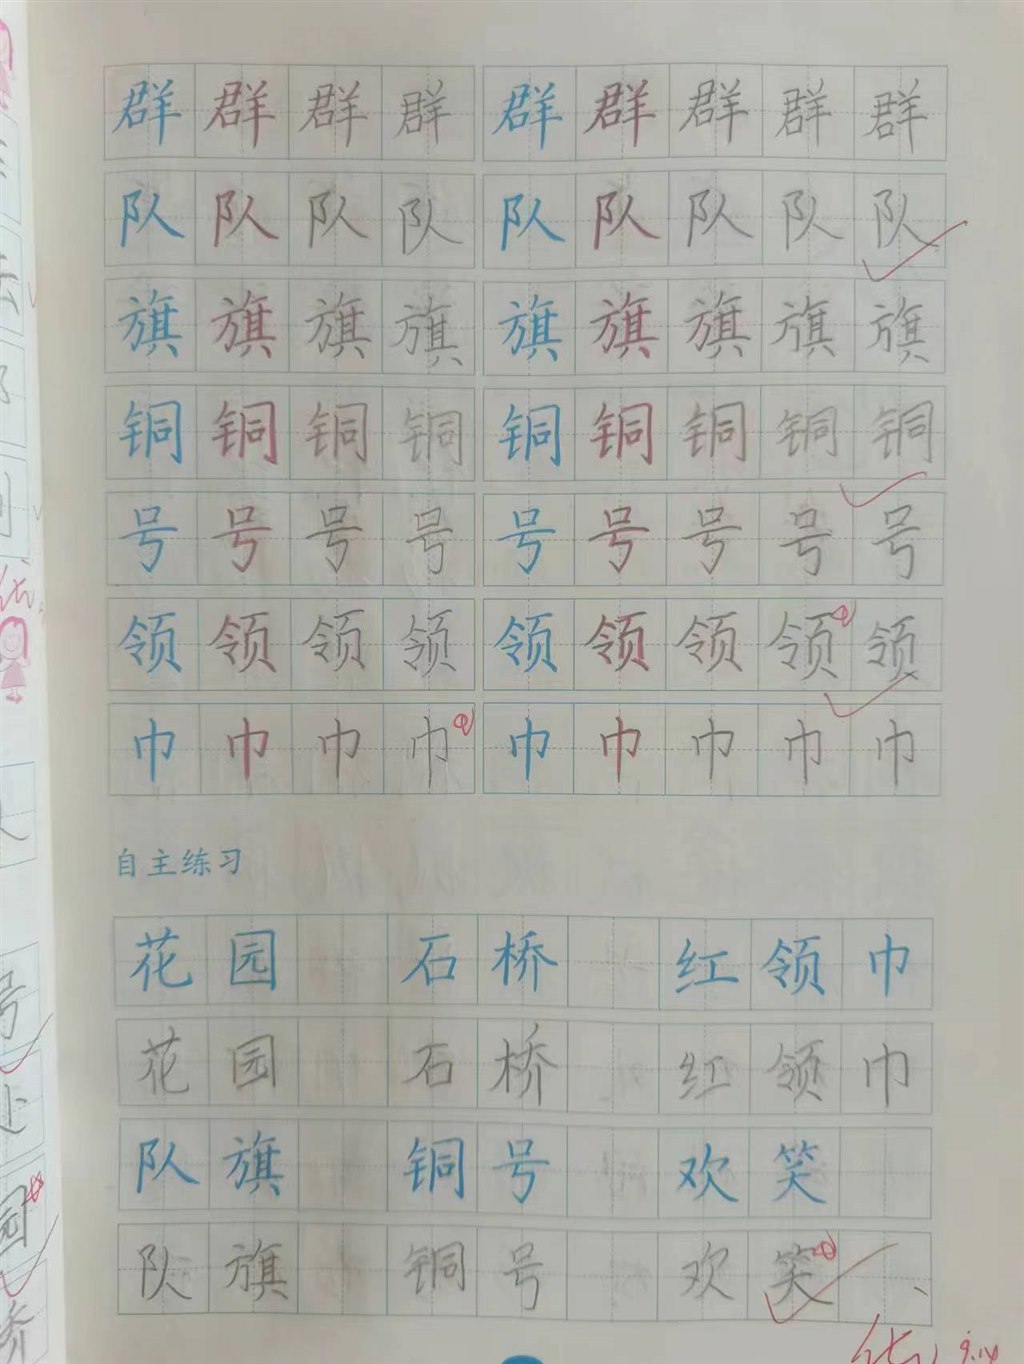 群群群群 群群群群群
队队队队 队队队队队
旗旗旗旗 旗旗旗旗旗
铜铜铜铜 铜铜铜铜铜
号号号号 号号号号号
领领领领 领领领领领
巾巾巾巾 巾巾巾巾巾
自主练习
花园 石桥 红领巾
花园 石桥 红领巾
队旗 铜号 欢笑
队旗 铜号 欢笑
优